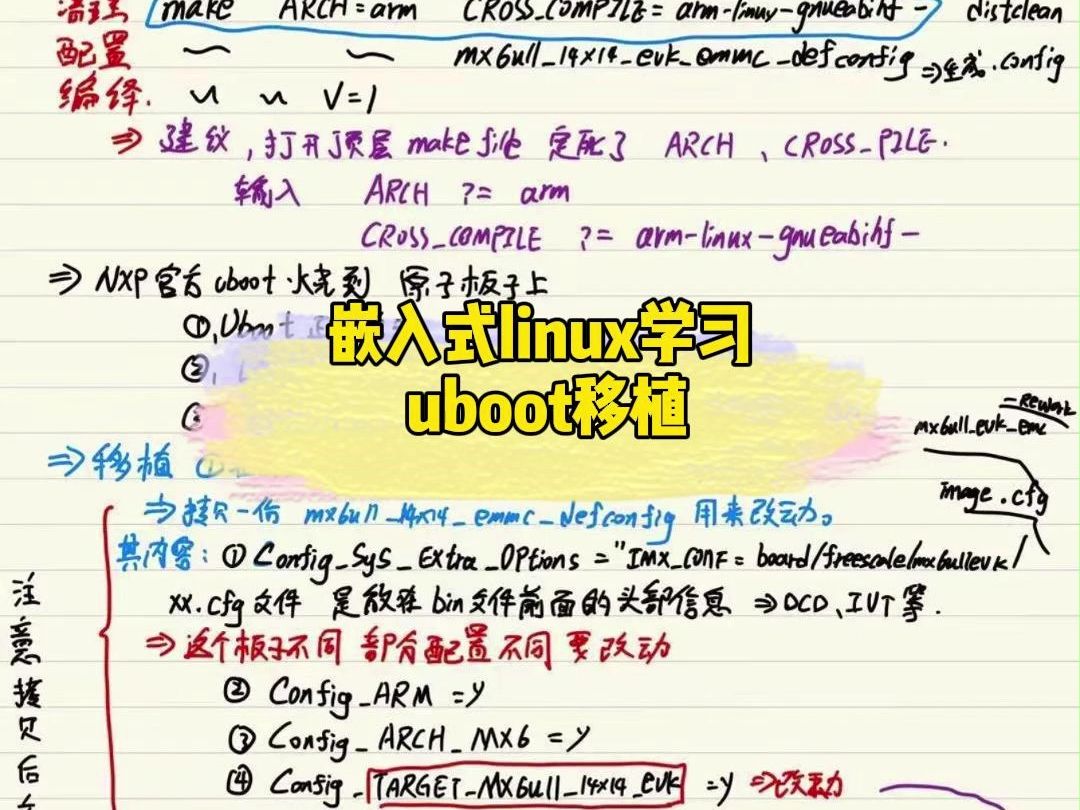 清理 make ARCH=arm CROSS_COMPILE=arm-linux-gnueabihf- distclean
配置 mx6ull_14x14_evk_emmc_defconfig ⇒生成.config
编译. V=1
⇒ 建议,打开顶层makefile 定死了 ARCH、CROSS_PILE.
输入 ARCH ?= arm
CROSS_COMPILE ?= arm-linux-gnueabihf-
⇒ NXP官方uboot烧到 原子板子上
①,Uboot 正
②,
③
嵌入式linux学习
uboot移植
=rework
mx6ull_evk_emc
image.cfg
⇒移植 ①
⇒拷贝一份 mx6ull_14x14_emmc_defconfig 用来改动。
其内容: ① Config_SyS_EXtra_OPtions ="IMX_CONF = board/freescale/mx6ullevk/
xx.cfg文件 是放在bin文件前面的头部信息 ⇒ DCD、IVT等.
⇒这个板子不同 部分配置不同 要改动
② Config_ARM =y
③ Config_ARCH_MX6 =y
④ Config_TARGET_MX6ull_14x14_evk =y ⇒改动
注意拷贝后